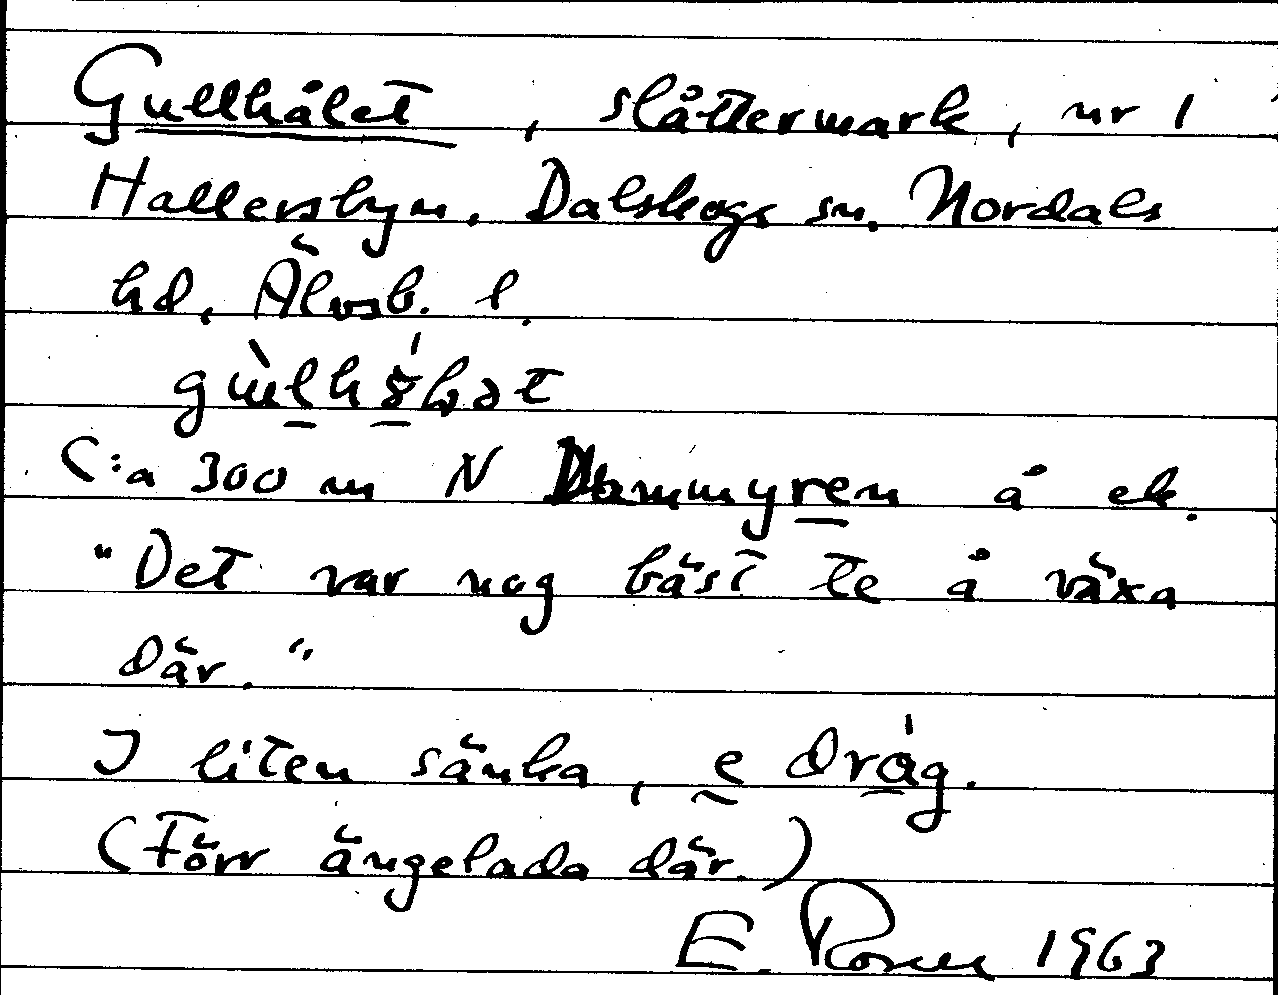 Gullhålet, slåttermark, nr 1
Hallersbyn. Dalskogs sn. Nordals
hd, Älvsb. l.
C:a 300 m N Dammyren å ek.
"Det var nog bäst te å växa
där."
I liten sänka, e dråg.
(Förr ängelada där.)
E. 1963